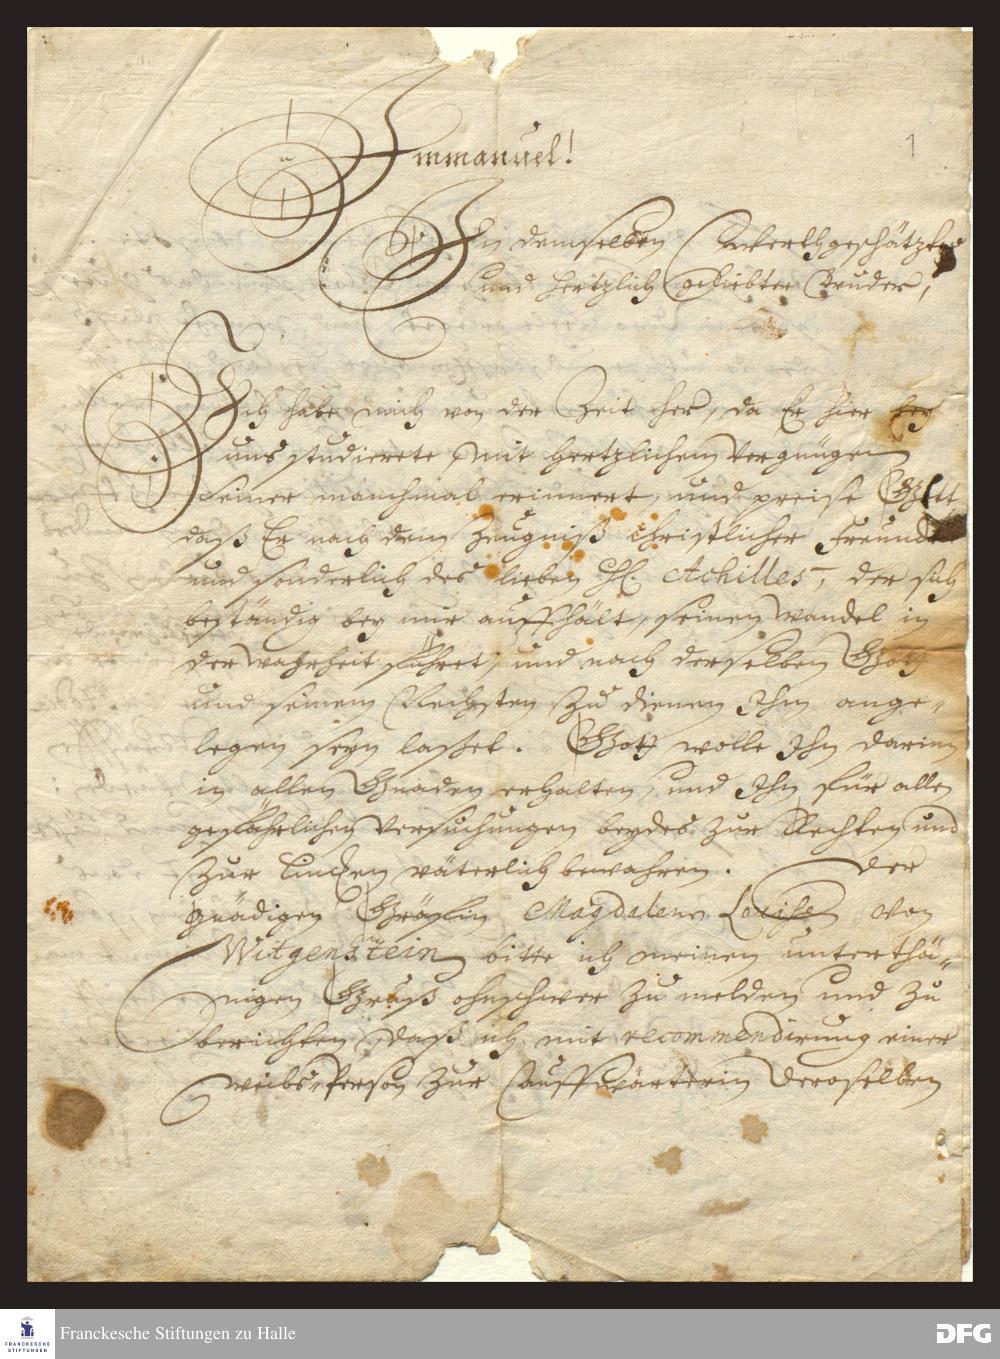 Immanuel!
1
In demselben Werthgeschätzter
und hertzlich geliebter Bruder,
Ich habe mich von der Zeit her, da Er hier bey
uns studierete, mit hertzlichem Vergnügen
seiner manchmal erinnert, und preise Gott
daß Er nach dem Zeugniß christlicher Freunde
und sonderlich des lieben H. Achilles, der sich
beständig bey mir auffhält, seinen Wandel in
der Wahrheit führet, und nach derselben Gott
und seinem Nechsten zu dienen Ihm ange-
legen seyn lasset. Gott wolle Ihn darinn
in allen Gnaden erhalten, und Ihn für allen
gefährlichen Versuchungen beydes zur Rechten und
zur Lincken väterlich bewahren. Der
gnädigen Gräfin Magdalenen Louise von
Witgenstein bitte ich meinen unterthä-
nigen Gruß ohnschwer zu melden und zu
berichten, daß ich mit recommendirung einer
weibs-Person zur Auffwärterin Deroselben
Franckesche Stiftungen zu Halle
FRANCKESCHE
STIFTUNGEN
DFG